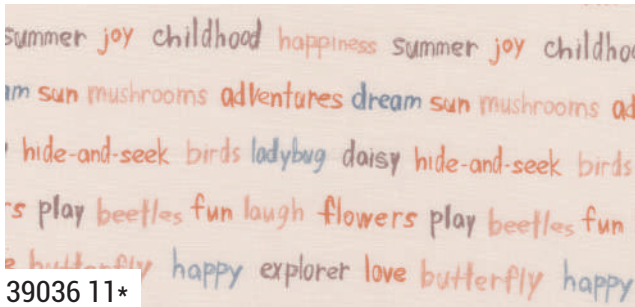 summer joy childhood happiness summer joy childhoo
am sun mushrooms adventures dream sun mushrooms ad
hide-and-seek birds ladybug daisy hide-and-seek birds
s play beetles fun laugh flowers play beetles fun
e butterfly happy explorer love butterfly happy
39036 11*